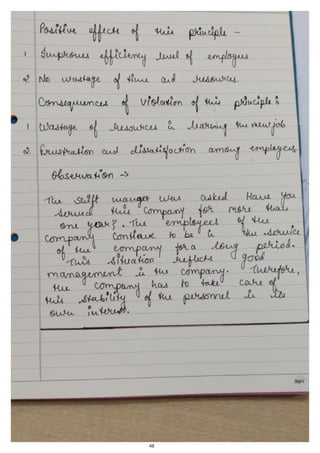 Positive effects of this principle -
1 Improves efficiency level of employees
2 No wastage of time and resources.
Consequences of violation of this principle :
1 Wastage of resources in learning the new job
2. Frustration and dissatisfaction among employees
Observation ->
The shift manager was asked Have you
served this company for more than
one year? . The employees of the
company continue to be in the service
of the company for a long period.
This situation reflects good
management in the company. Therefore,
the company has to take care of
this stability of the personnel in its
own interest.
48